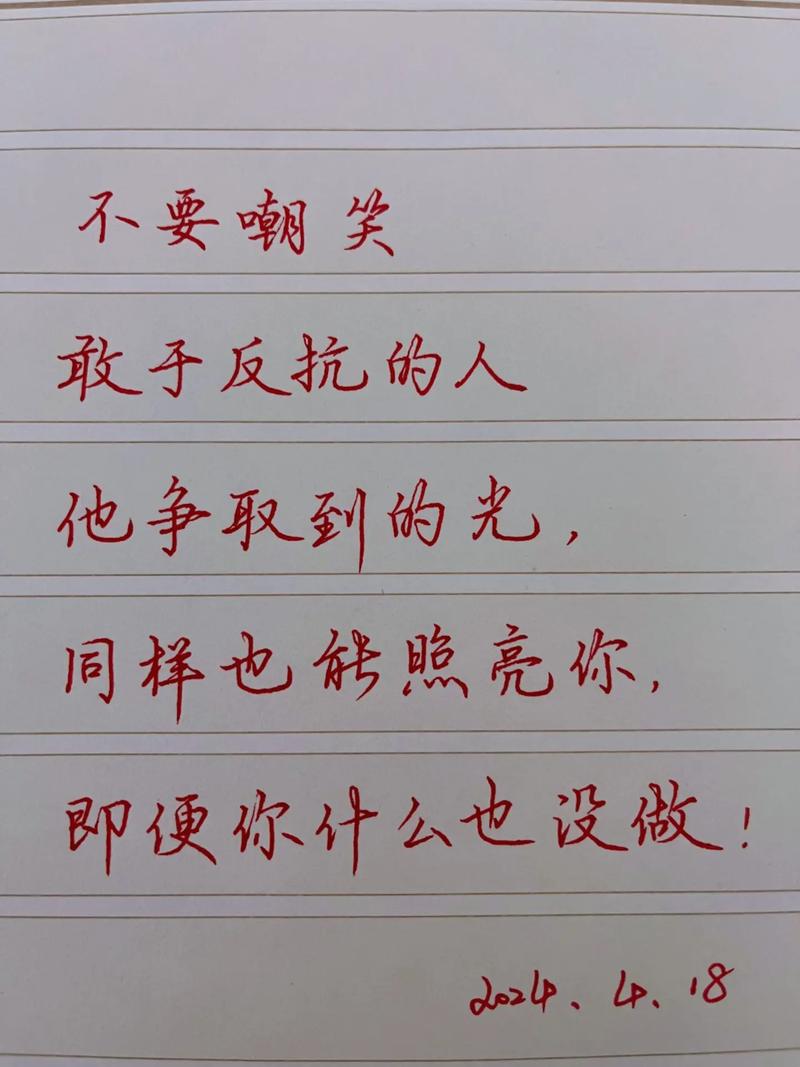 不要嘲笑
敢于反抗的人
他争取到的光,
同样也能照亮你,
即便你什么也没做!
2024.4.18